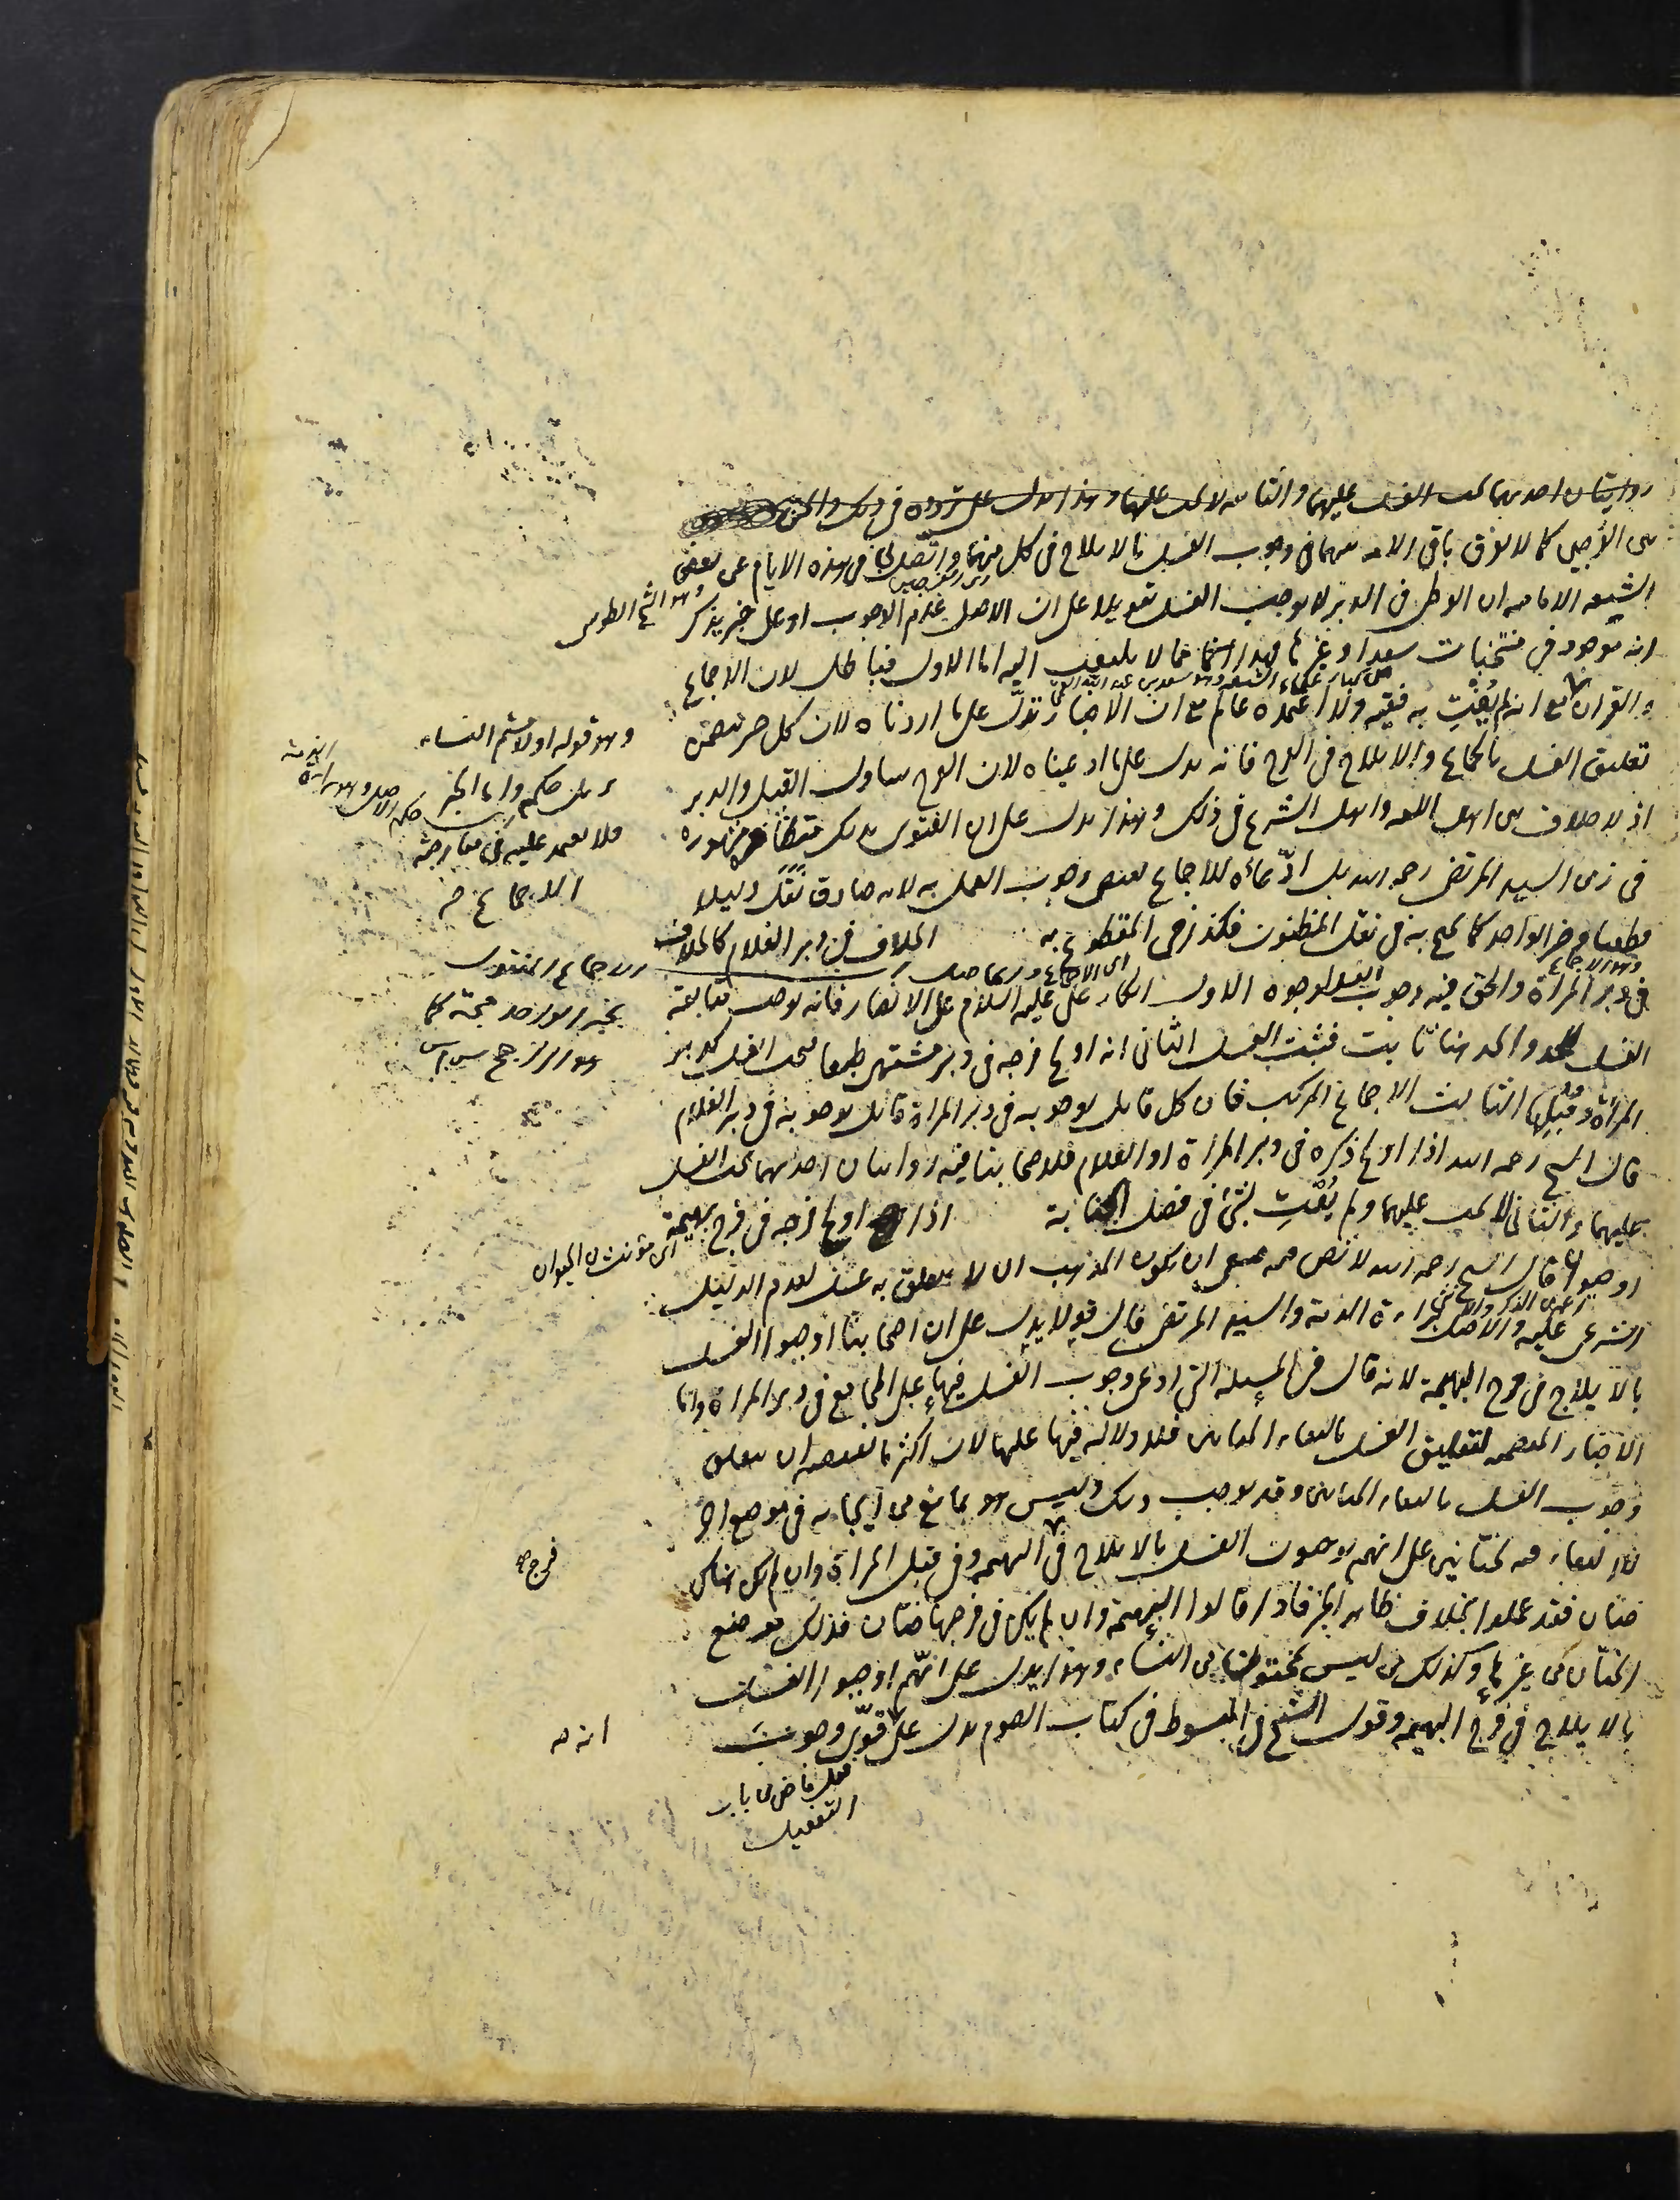 روايتان احديهما يجب الغسل عليهما والثانية لا يجب عليهما وهذا يدل على تردده في ذلك والحق
بين الفرجين كما لا يفرق باقي الامة بينهما في وجوب الغسل بالايلاج في كل منهما واتصل لي في هذه الايام عن بعض
الشيعة الامامية ان الوطي في الدبر لا يوجب الغسل تعويلا على ان الاصل عدم الوجوب او على خبر يذكر
وهو الشيخ الطوسي
انه موجود في منتخبات سعد او غيرها فهذا مما لا يلتفت اليه اما الاول فباطل لان الاجماع
من كبار علماء الشيعة وهو سعد بن عبد الله القمي
والقران مع انه لم يفت به فقيه ولا اعتمده عالم مع ان الاخبار تدل على ما اردناه لان كل خبر يتضمن
تعليق الغسل بالجماع والايلاج في الفرج فانه يدل على ما ادعيناه لان الفرج يتناول القبل والدبر
اذ لا خلاف بين اهل اللغة واهل الشرع في ذلك وهذا يدل على ان الفتوى بذلك متظاهر مشهورة
في زمن السيد المرتضى رحمه الله بل ادعاؤه للاجماع يقتضي وجوب العمل به لانه صادق نقل دليلا
قطعيا وخبر الواحد كما يحتج به في نقل المظنون فكذا في المقطوع به الخلاف في دبر الغلام كالخلاف
وهو الاجماع
في دبر المرأة والحق فيه وجوب الغسل لوجوه الاول انكار علي عليه السلام على الانصار فانه يوجب متابعة
الغسل للحد والحد هنا ثابت فيثبت الغسل الثاني انه اولج فرجه في دبر مشتهى طبعا فيجب الغسل كدبر
المرأة وقبلها الثالث الاجماع المركب فان كل قائل بوجوبه في دبر المرأة قائل بوجوبه في دبر الغلام
قال الشيخ رحمه الله اذا اولج ذكره في دبر المرأة او الغلام فلاصحابنا فيه روايتان احديهما يجب الغسل
عليهما والثاني لا يجب عليهما ولم يفت بشئ في فصل الجنابة اذا اولج فرجه في فرج بهيمة
اي مؤنث الحيوان
او حيوان قال الشيخ رحمه الله لا نص فيه فينبغي ان يكون المذهب ان لا يتعلق به غسل لعدم الدليل
الشرعي عليه والاصل براءة الذمة والسيد المرتضى قال قولا يدل على ان اصحابنا اوجبوا الغسل
بالايلاج في فرج البهيمة لانه قال في المسئلة التي ادعى وجوب الغسل فيها على المجامع في دبر المرأة واما
الاخبار المتضمنة لتعليق الغسل بالتقاء الختانين فلا دلالة فيها عليها لان اكثر ما تقتضيه ان يتعلق
وجوب الغسل بالتقاء الختانين وقد يوجب ذلك وليس هو بمانع من ايجابه في موضع اخر
لا التقاء فيه لختانين على انهم يوجبون الغسل بالايلاج في البهيمة وفي قبل المرأة وان لم يكن هناك
فرج صح
ختان فقد عملوا بخلاف ظاهر الخبر فاذا قالوا البهيمة وان لم يكن في فرجها ختان فذلك موضع
الختان في غيرها وكذلك من ليس بمختون من النساء وهذا يدل على انهم اوجبوا الغسل
بالايلاج في فرج البهيمة وقول الشيخ في المبسوط في كتاب الصوم يدل على قوي وجوب
فعل ماض من باب
التفعيل
وهو قوله او لامستم النساء
واما الخبر
فلا يعتمد عليه في معارضة
الاجماع
الاجماع المنقول
بخبر الواحد حجة كما
انه